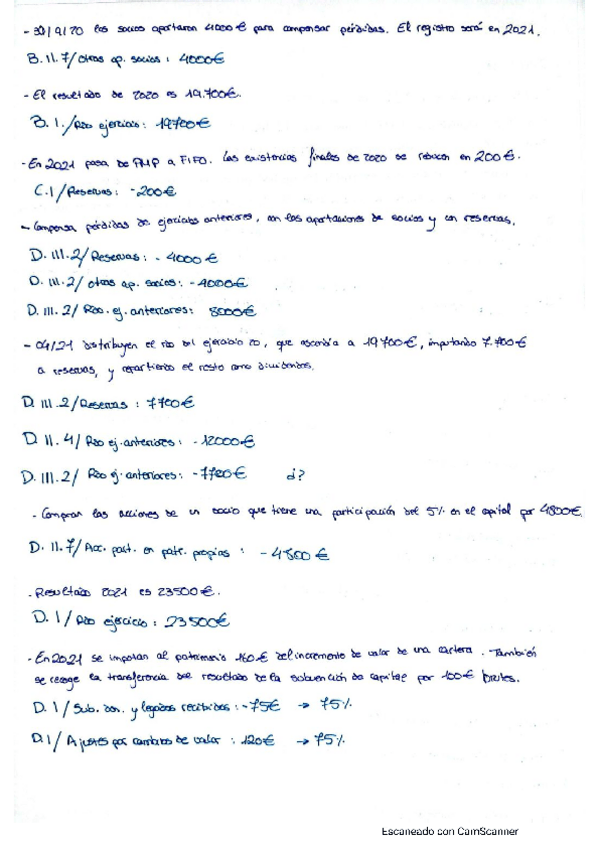 - 30/9/20 los socios aportaron 4000€ para compensar pérdidas. El registro será en 2021.
B. II. 7/ Otras ap. socios : 4000€
- El resultado de 2020 es 19.700€.
B. I. / Rdo ejercicio : 19700€
- En 2021 pasa de PMP a FIFO. Las existencias finales de 2020 se reducen en 200€.
C. I / Reservas : -200€
- Compensa pérdidas de ejercicios anteriores, con las aportaciones de socios y con reservas.
D. III. 2/ Reservas : - 4000€
D. III. 2/ Otras ap. socios : - 4000€
D. III. 2/ Rdo. ej. anteriores : 8000€
- 04/21 distribuyen el rdo del ejercicio 20, que ascendía a 19700€, imputando 7.700€
a reservas, y repartiendo el resto como dividendos.
D. III. 2/ Reservas : 7700€
D. II. 4/ Rdo ej. anteriores : -12000€
D. III. 2/ Rdo ej. anteriores : -7700€ ¿?
- Compran las acciones de un socio que tiene una participación del 5% en el capital por 4800€.
D. II. 7/ Acc. part. en patr. propias : - 4800€
- Resultado 2021 es 23500€.
D. I / Rdo ejercicio : 23500€
- En 2021 se imputan al patrimonio 160€ del incremento de valor de una cartera. También
se recoge la transferencia del resultado de la subvención de capital por 100€ brutos.
D. I / Sub. don. y legados recibidos : -75€ → 75%
D. I / Ajustes por cambios de valor : 120€ → 75%
Escaneado con CamScanner